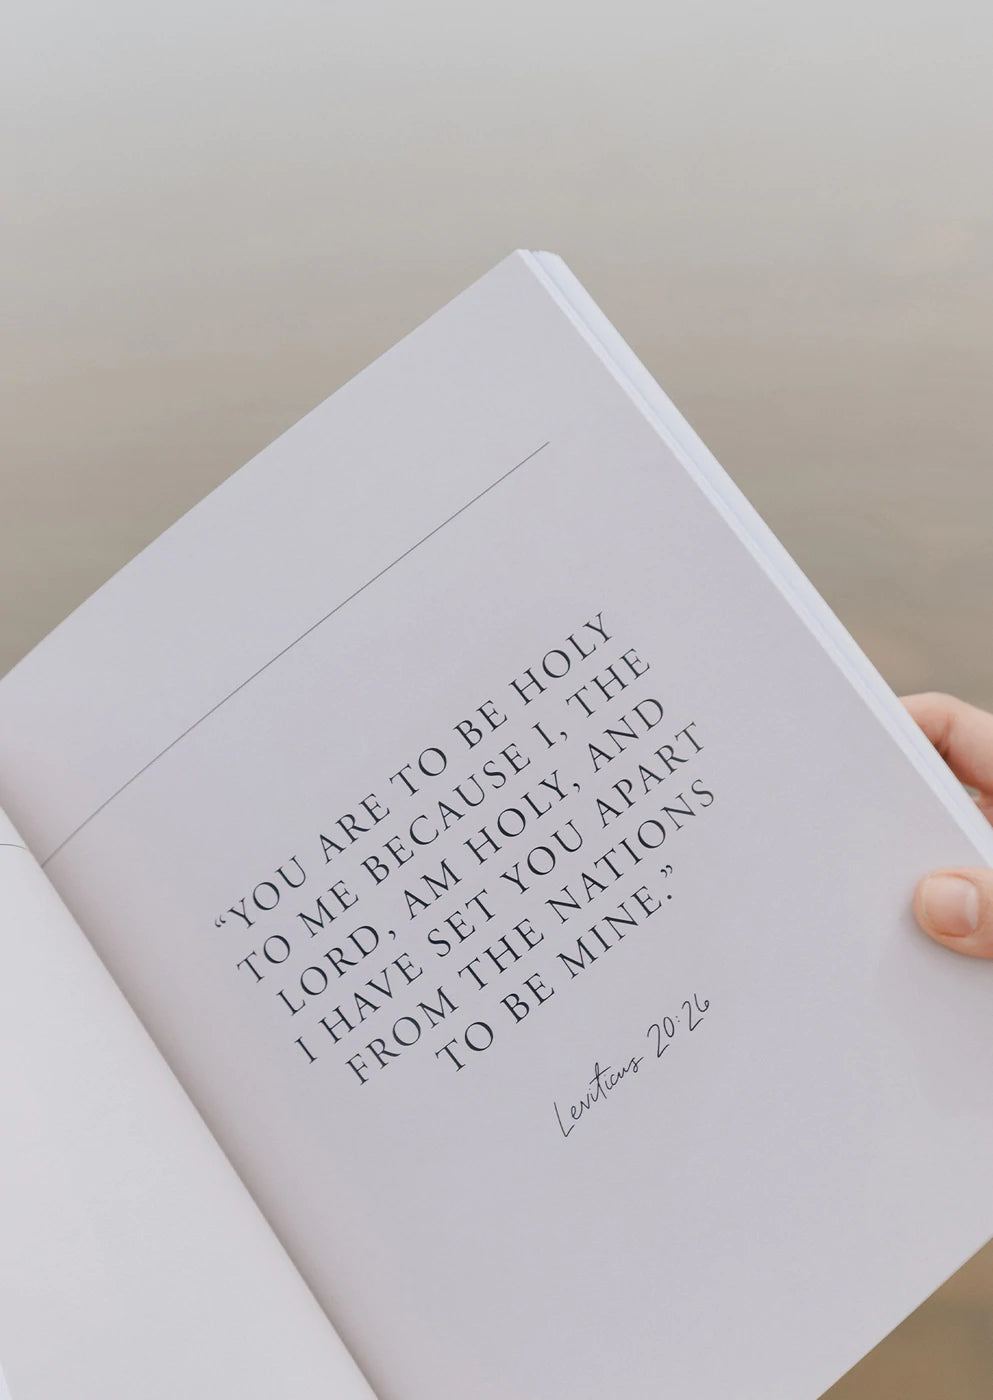 “YOU ARE TO BE HOLY
TO ME BECAUSE I, THE
LORD, AM HOLY, AND
I HAVE SET YOU APART
FROM THE NATIONS
TO BE MINE.”
Leviticus 20:26